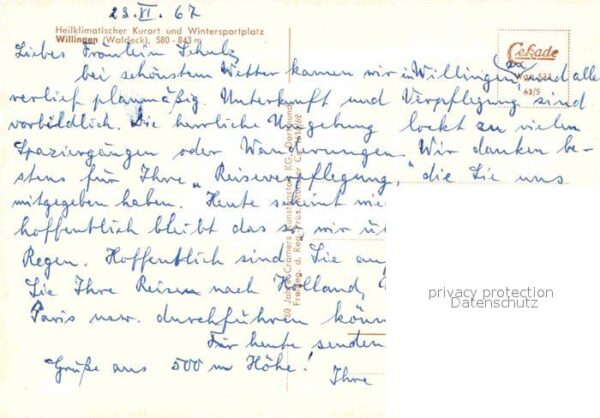 23. VI. 67
Heilklimatischer Kurort und Wintersportplatz
Willingen (Waldeck), 580 - 843 m
Liebes Fräulein Schulz
bei schönstem Wetter kamen wir in Willingen an und alles
verlief planmäßig. Unterkunft und Verpflegung sind
vorbildlich. Die herrliche Umgebung lockt zu vielen
Spaziergängen oder Wanderungen. Wir danken be-
stens für Ihre „Reiseverpflegung," die Sie uns
mitgegeben haben. Heute scheint wie
hoffentlich bleibt das so wir ü
Regen. Hoffentlich sind Sie au
Sie Ihre Reisen nach Holland,
Paris usw. durchführen könn
Für heute senden
Grüße aus 500 m Höhe!
Ihre
Cekade
63/5
60 Jahre Cramers Kunstanstalt KG, Dortmund
privacy protection
Datenschutz